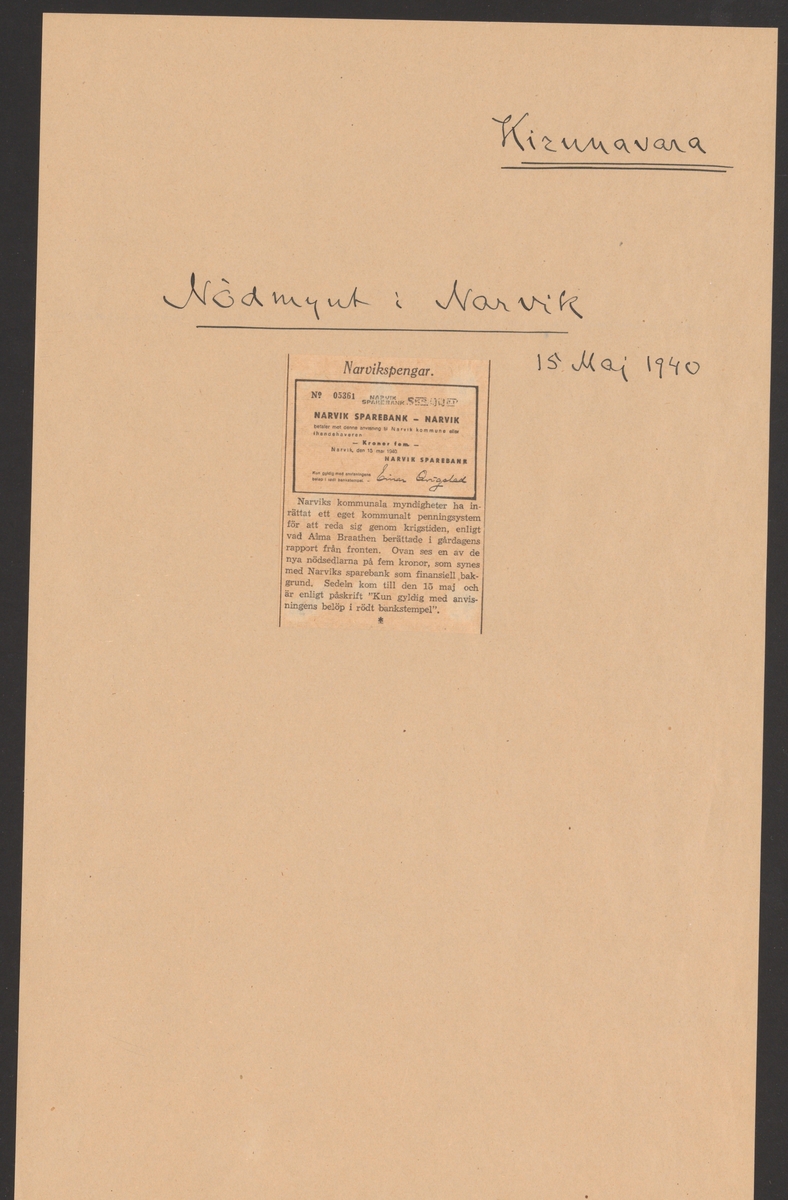 Kirunavara
Nödmynt i Narvik
15 Maj 1940
Narvikspengar.
Nº 05361 NARVIK
SPAREBANK
NARVIK SPAREBANK – NARVIK
betaler mot denne anvisning til Narvik kommune eller
ihendehaveren
— Kroner fem. —
Narvik, den 15. mai 1940
NARVIK SPAREBANK
Kun gyldig med anvisningens
beløp i rødt bankstempel.
Narviks kommunala myndigheter ha in-
rättat ett eget kommunalt penningsystem
för att reda sig genom krigstiden, enligt
vad Alma Braathen berättade i gårdagens
rapport från fronten. Ovan ses en av de
nya nödsedlarna på fem kronor, som synes
med Narviks sparebank som finansiell bak-
grund. Sedeln kom till den 15 maj och
är enligt påskrift "Kun gyldig med anvis-
ningens belöp i rödt bankstempel".
*